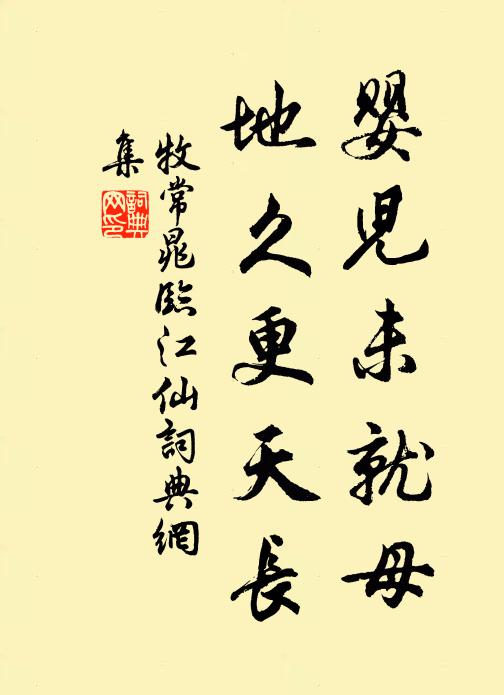 嬰児未就母
地久更天長
牧常晁臨江仙詞典網
集
詞典網印